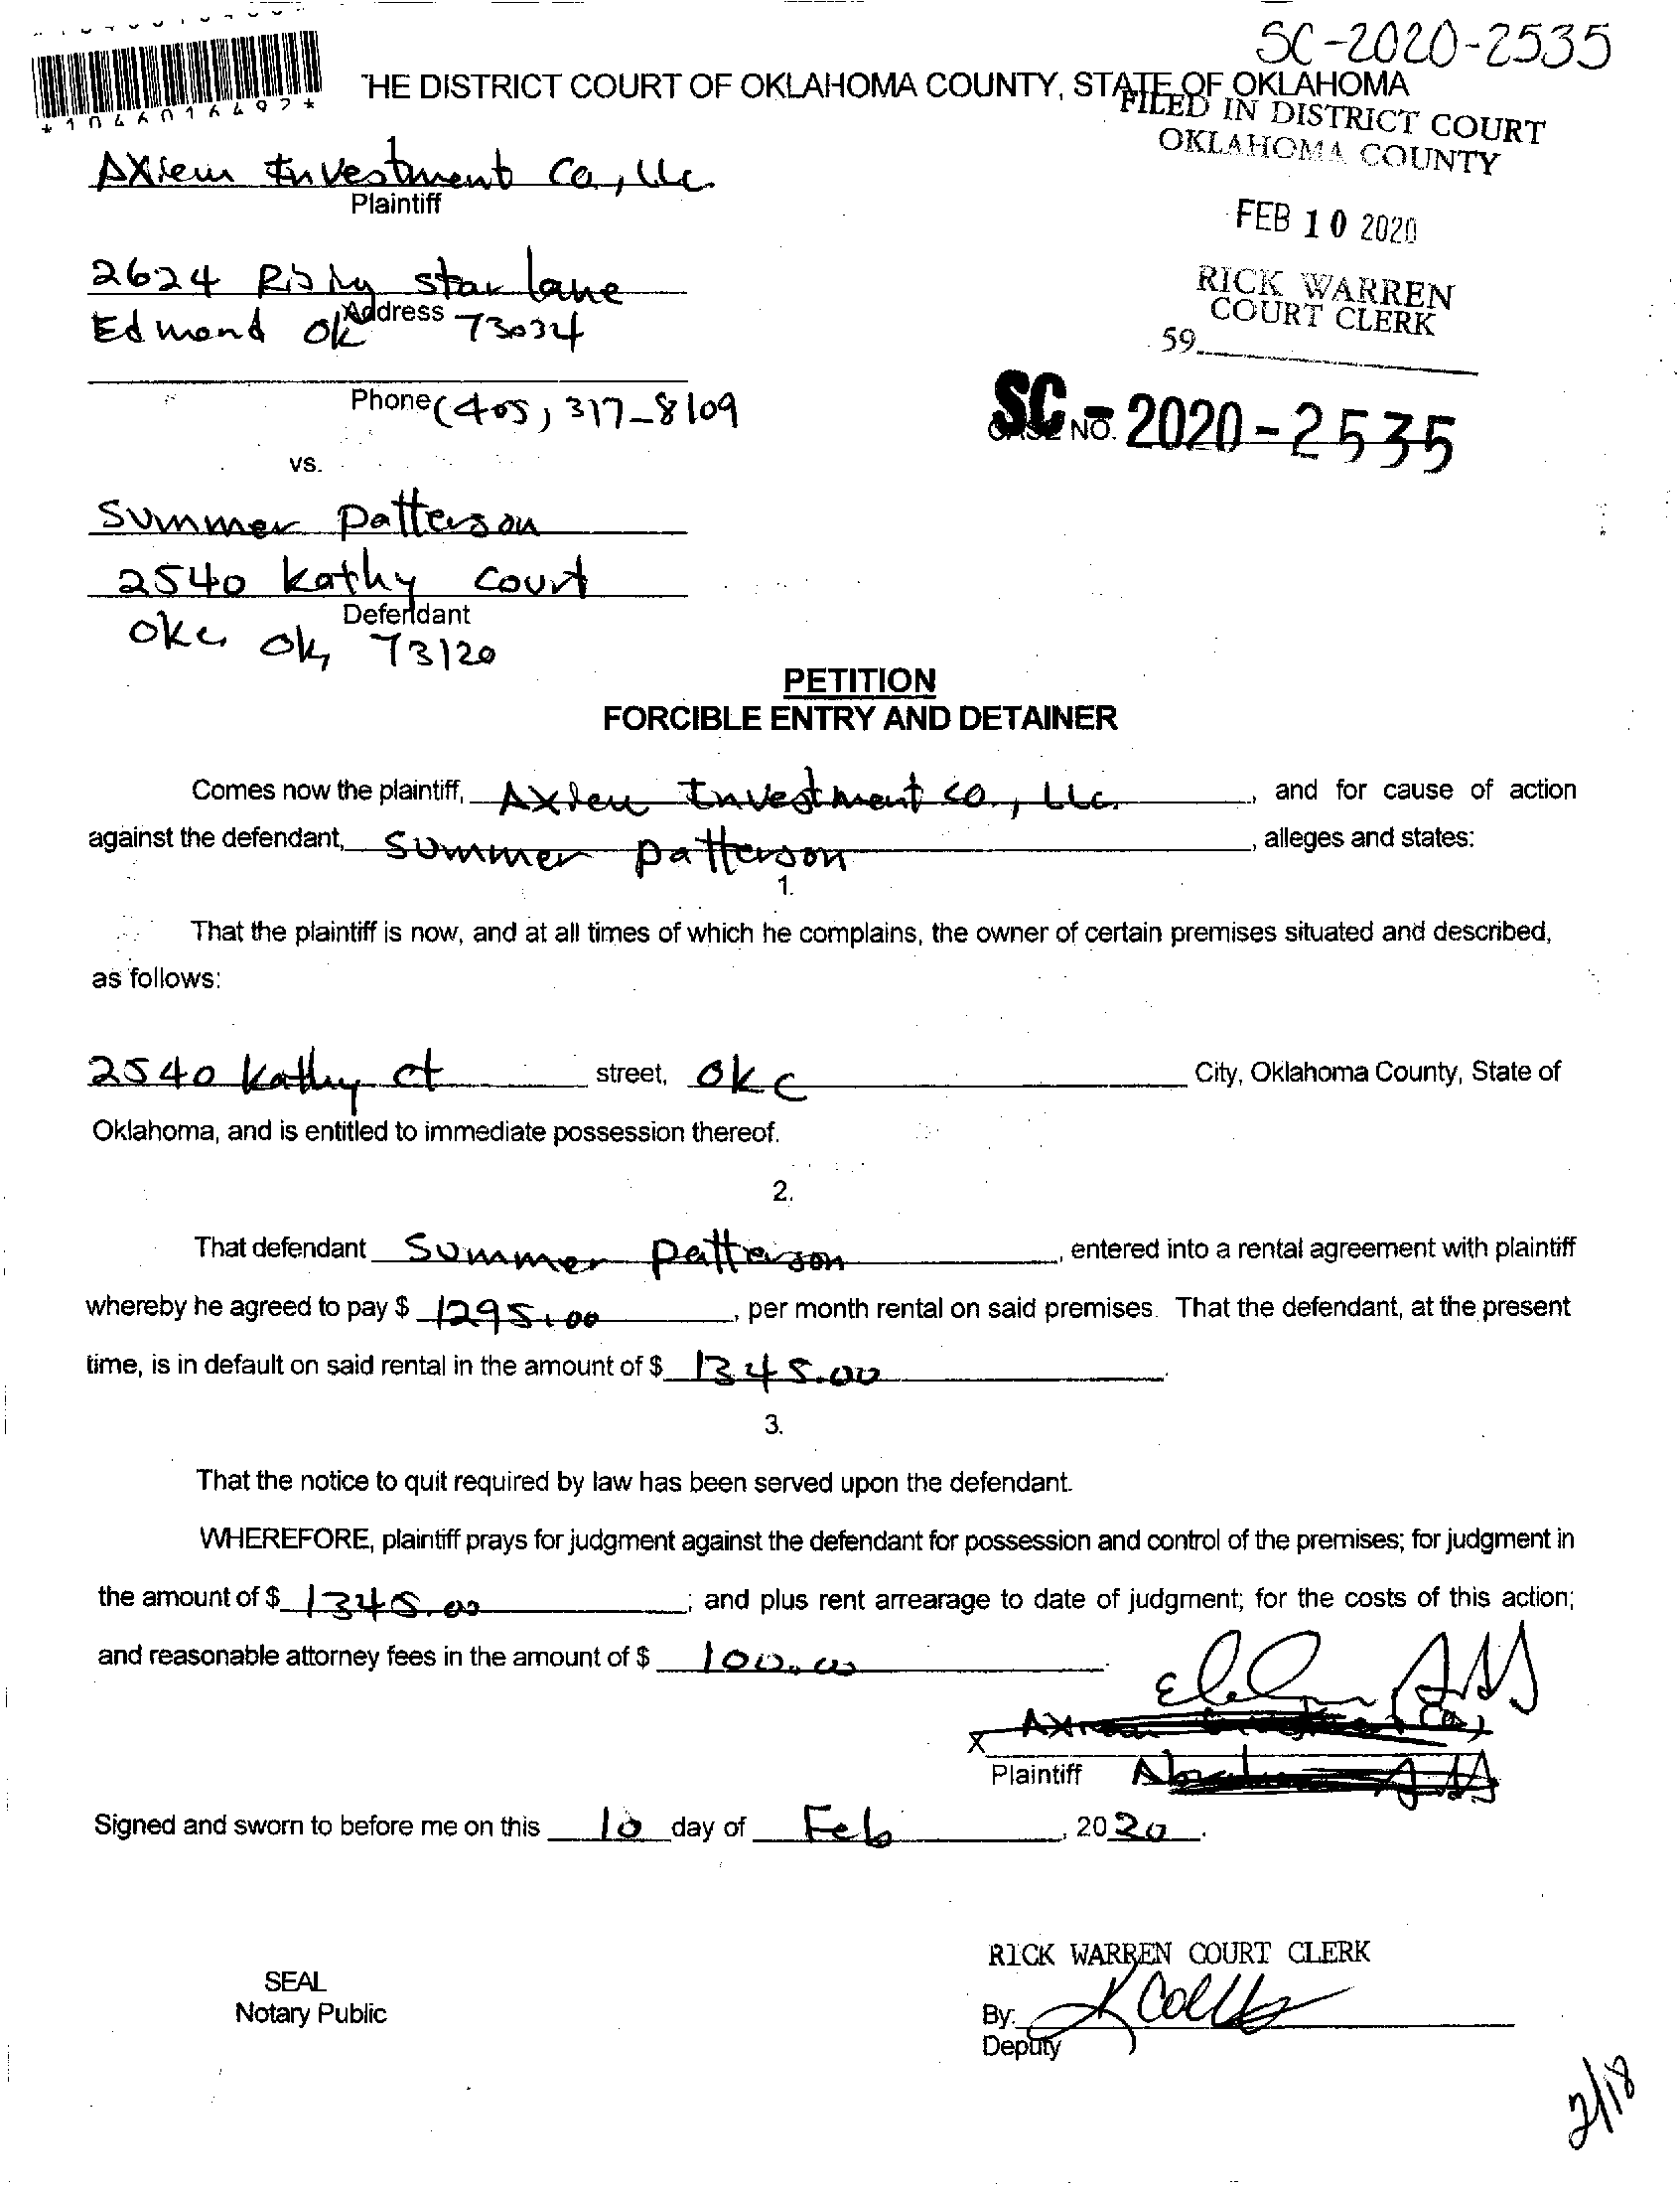 SC-2020-2535
THE DISTRICT COURT OF OKLAHOMA COUNTY, STATE OF OKLAHOMA
FILED IN DISTRICT COURT
OKLAHOMA COUNTY
FEB 10 2020
RICK WARREN
COURT CLERK
59
SC-2020-2535
CASE NO.
Investment Co, LLC.
Plaintiff
2624 Rising star lane
Address
Edmond OK 73034
Phone (405) 317-8109
vs.
Summer Patterson
2540 Kathy Court
Defendant
OKC OK, 73120
PETITION
FORCIBLE ENTRY AND DETAINER
Comes now the plaintiff, Investment Co, LLC., and for cause of action
against the defendant, Summer Patterson, alleges and states:
1.
That the plaintiff is now, and at all times of which he complains, the owner of certain premises situated and described,
as follows:
2540 Kathy ct street, OKC City, Oklahoma County, State of
Oklahoma, and is entitled to immediate possession thereof.
2.
That defendant Summer Patterson, entered into a rental agreement with plaintiff
whereby he agreed to pay $ 1295.00, per month rental on said premises. That the defendant, at the present
time, is in default on said rental in the amount of $ 1345.00.
3.
That the notice to quit required by law has been served upon the defendant.
WHEREFORE, plaintiff prays for judgment against the defendant for possession and control of the premises; for judgment in
the amount of $ 1345.00; and plus rent arrearage to date of judgment; for the costs of this action;
and reasonable attorney fees in the amount of $ 100.00.
X
Plaintiff
Signed and sworn to before me on this 10 day of Feb, 2020.
RICK WARREN COURT CLERK
SEAL
Notary Public
By:
Deputy
2/18